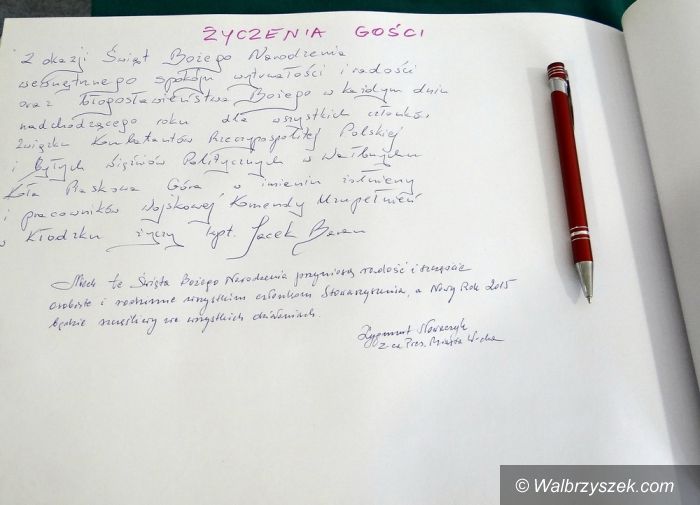 ŻYCZENIA GOŚCI
Z okazji Świąt Bożego Narodzenia
wewnętrznego spokoju wytrwałości i radości
oraz błogosławieństwa Bożego w każdym dniu
nadchodzącego roku dla wszystkich członków
Związku Kombatantów Rzeczypospolitej Polskiej
i Byłych Więźniów Politycznych w Wałbrzychu
Koła Piaskowa Góra w imieniu żołnierzy
i pracowników Wojskowej Komendy Uzupełnień
w Kłodzku życzy kpt. Jacek Baran
Niech te Święta Bożego Narodzenia przyniosą radość i szczęście
osobiste i rodzinne wszystkim członkom Stowarzyszenia, a Nowy Rok 2015
będzie szczęśliwy we wszystkich działaniach.
Zygmunt Nowaczyk
Z-ca Prez. Miasta W-cha
© Walbrzyszek.com